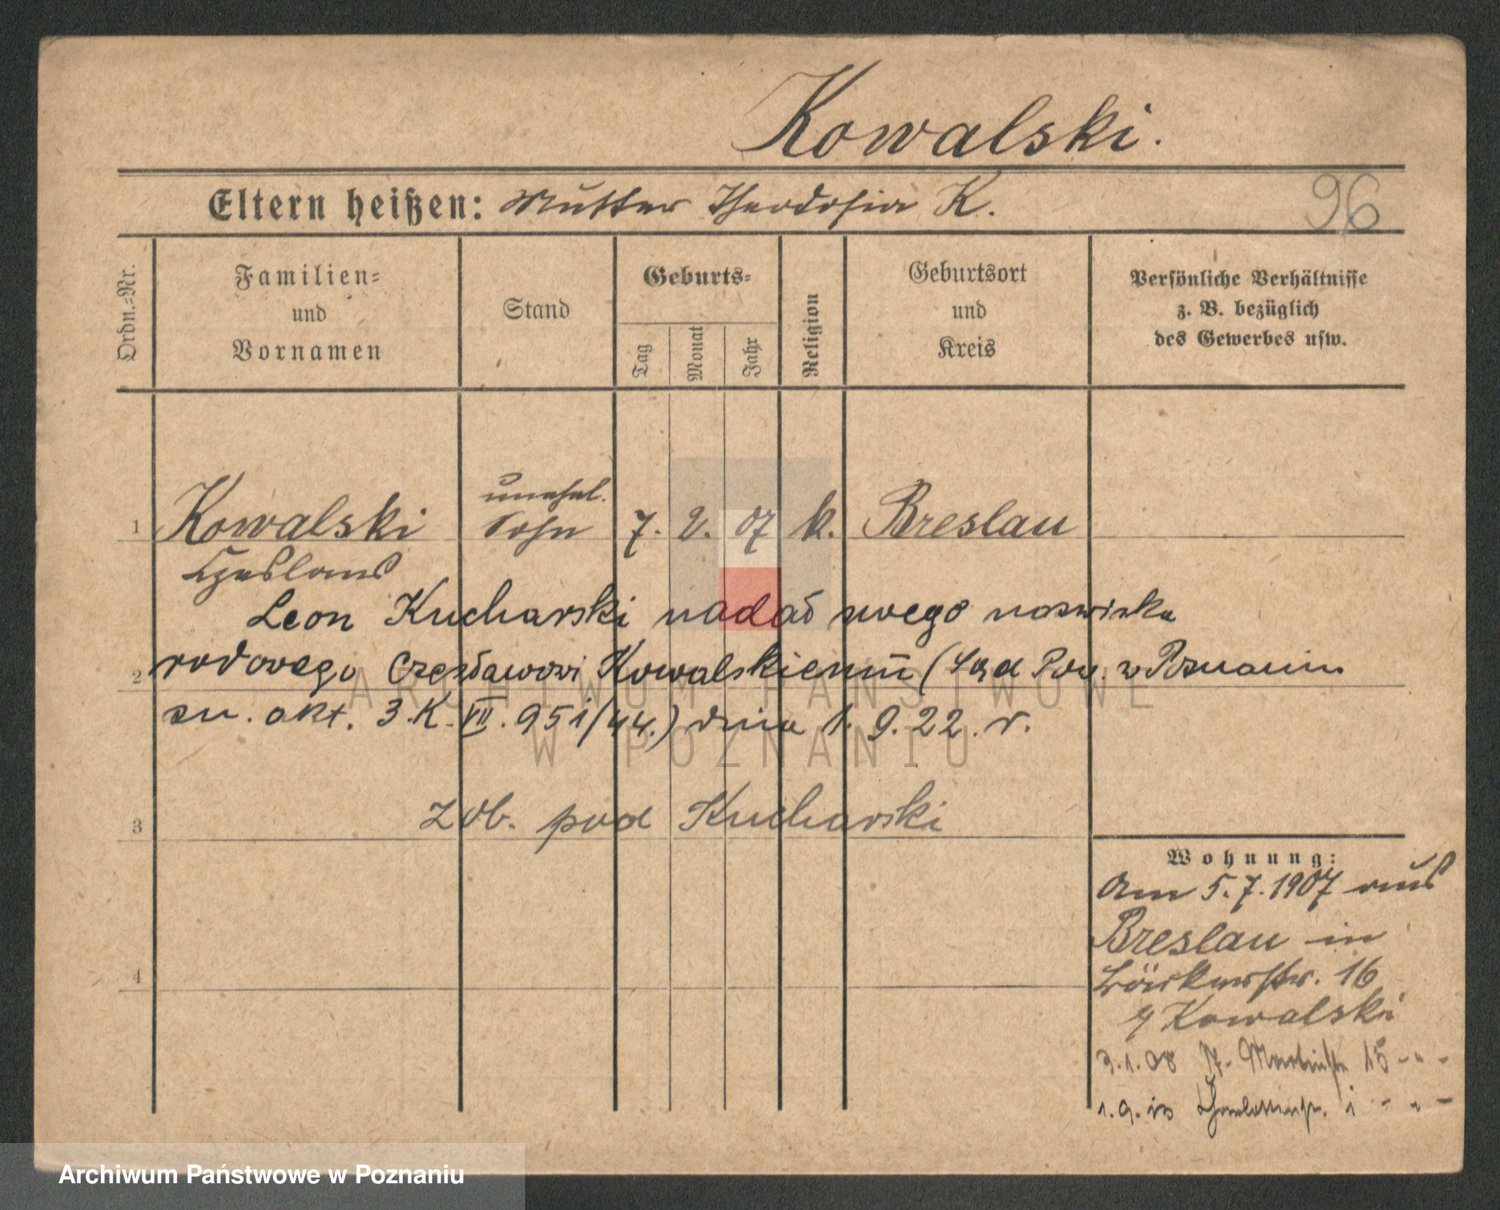 Kowalski.
Eltern heißen: Mutter Theodosia K.
96
Ordn.-Nr.
Familien-
und
Vornamen
Stand
Geburts-
Tag
Monat
Jahr
Religion
Geburtsort
und
Kreis
Persönliche Verhältnisse
z. B. bezüglich
des Gewerbes usw.
unehel.
1 Kowalski Sohn 7. 2. 07 k. Breslau
Czeslaus
Leon Kucharski nadał swego nazwiska
2 rodowego Czesławowi Kowalskiemu (Sąd Pow. w Poznaniu
zn. akt. 3.K.VII.951/44.) dnia 1.9.22.r.
3 zob. pod Kucharski
4
Wohnung:
Am 5.7.1907 aus
Breslau in
16
Kowalski
3.1.08 15 - " -
1 - " -
ARCHIWUM PAŃSTWOWE
W POZNANIU
Archiwum Państwowe w Poznaniu